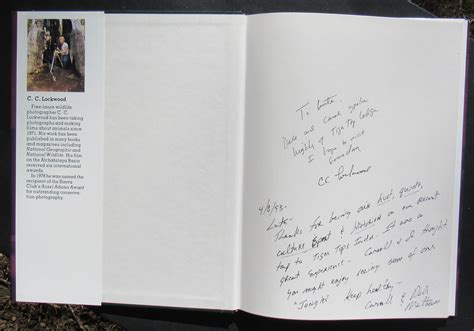 C. C. Lockwood
Free-lance wildlife
photographer C. C.
Lockwood has been taking
photographs and making
films about animals since
1971. His work has been
published in many books
and magazines, including
National Geographic and
National Wildlife. His film
on the Atchafalaya Basin
received six international
awards.
In 1978 he was named the
recipient of the Sierra
Club's Ansel Adams Award
for outstanding conserva-
tion photography.
To
and
highly of Tiger Lodge
I hope to visit
someday
CC Lockwood
4/8/93-
Thanks for being our host, guide,
culture & on our recent
trip to Tiger Tops India. It was a
great experience - & I thought
you might enjoy seeing some of our
"Jungle" Keep healthy -
&